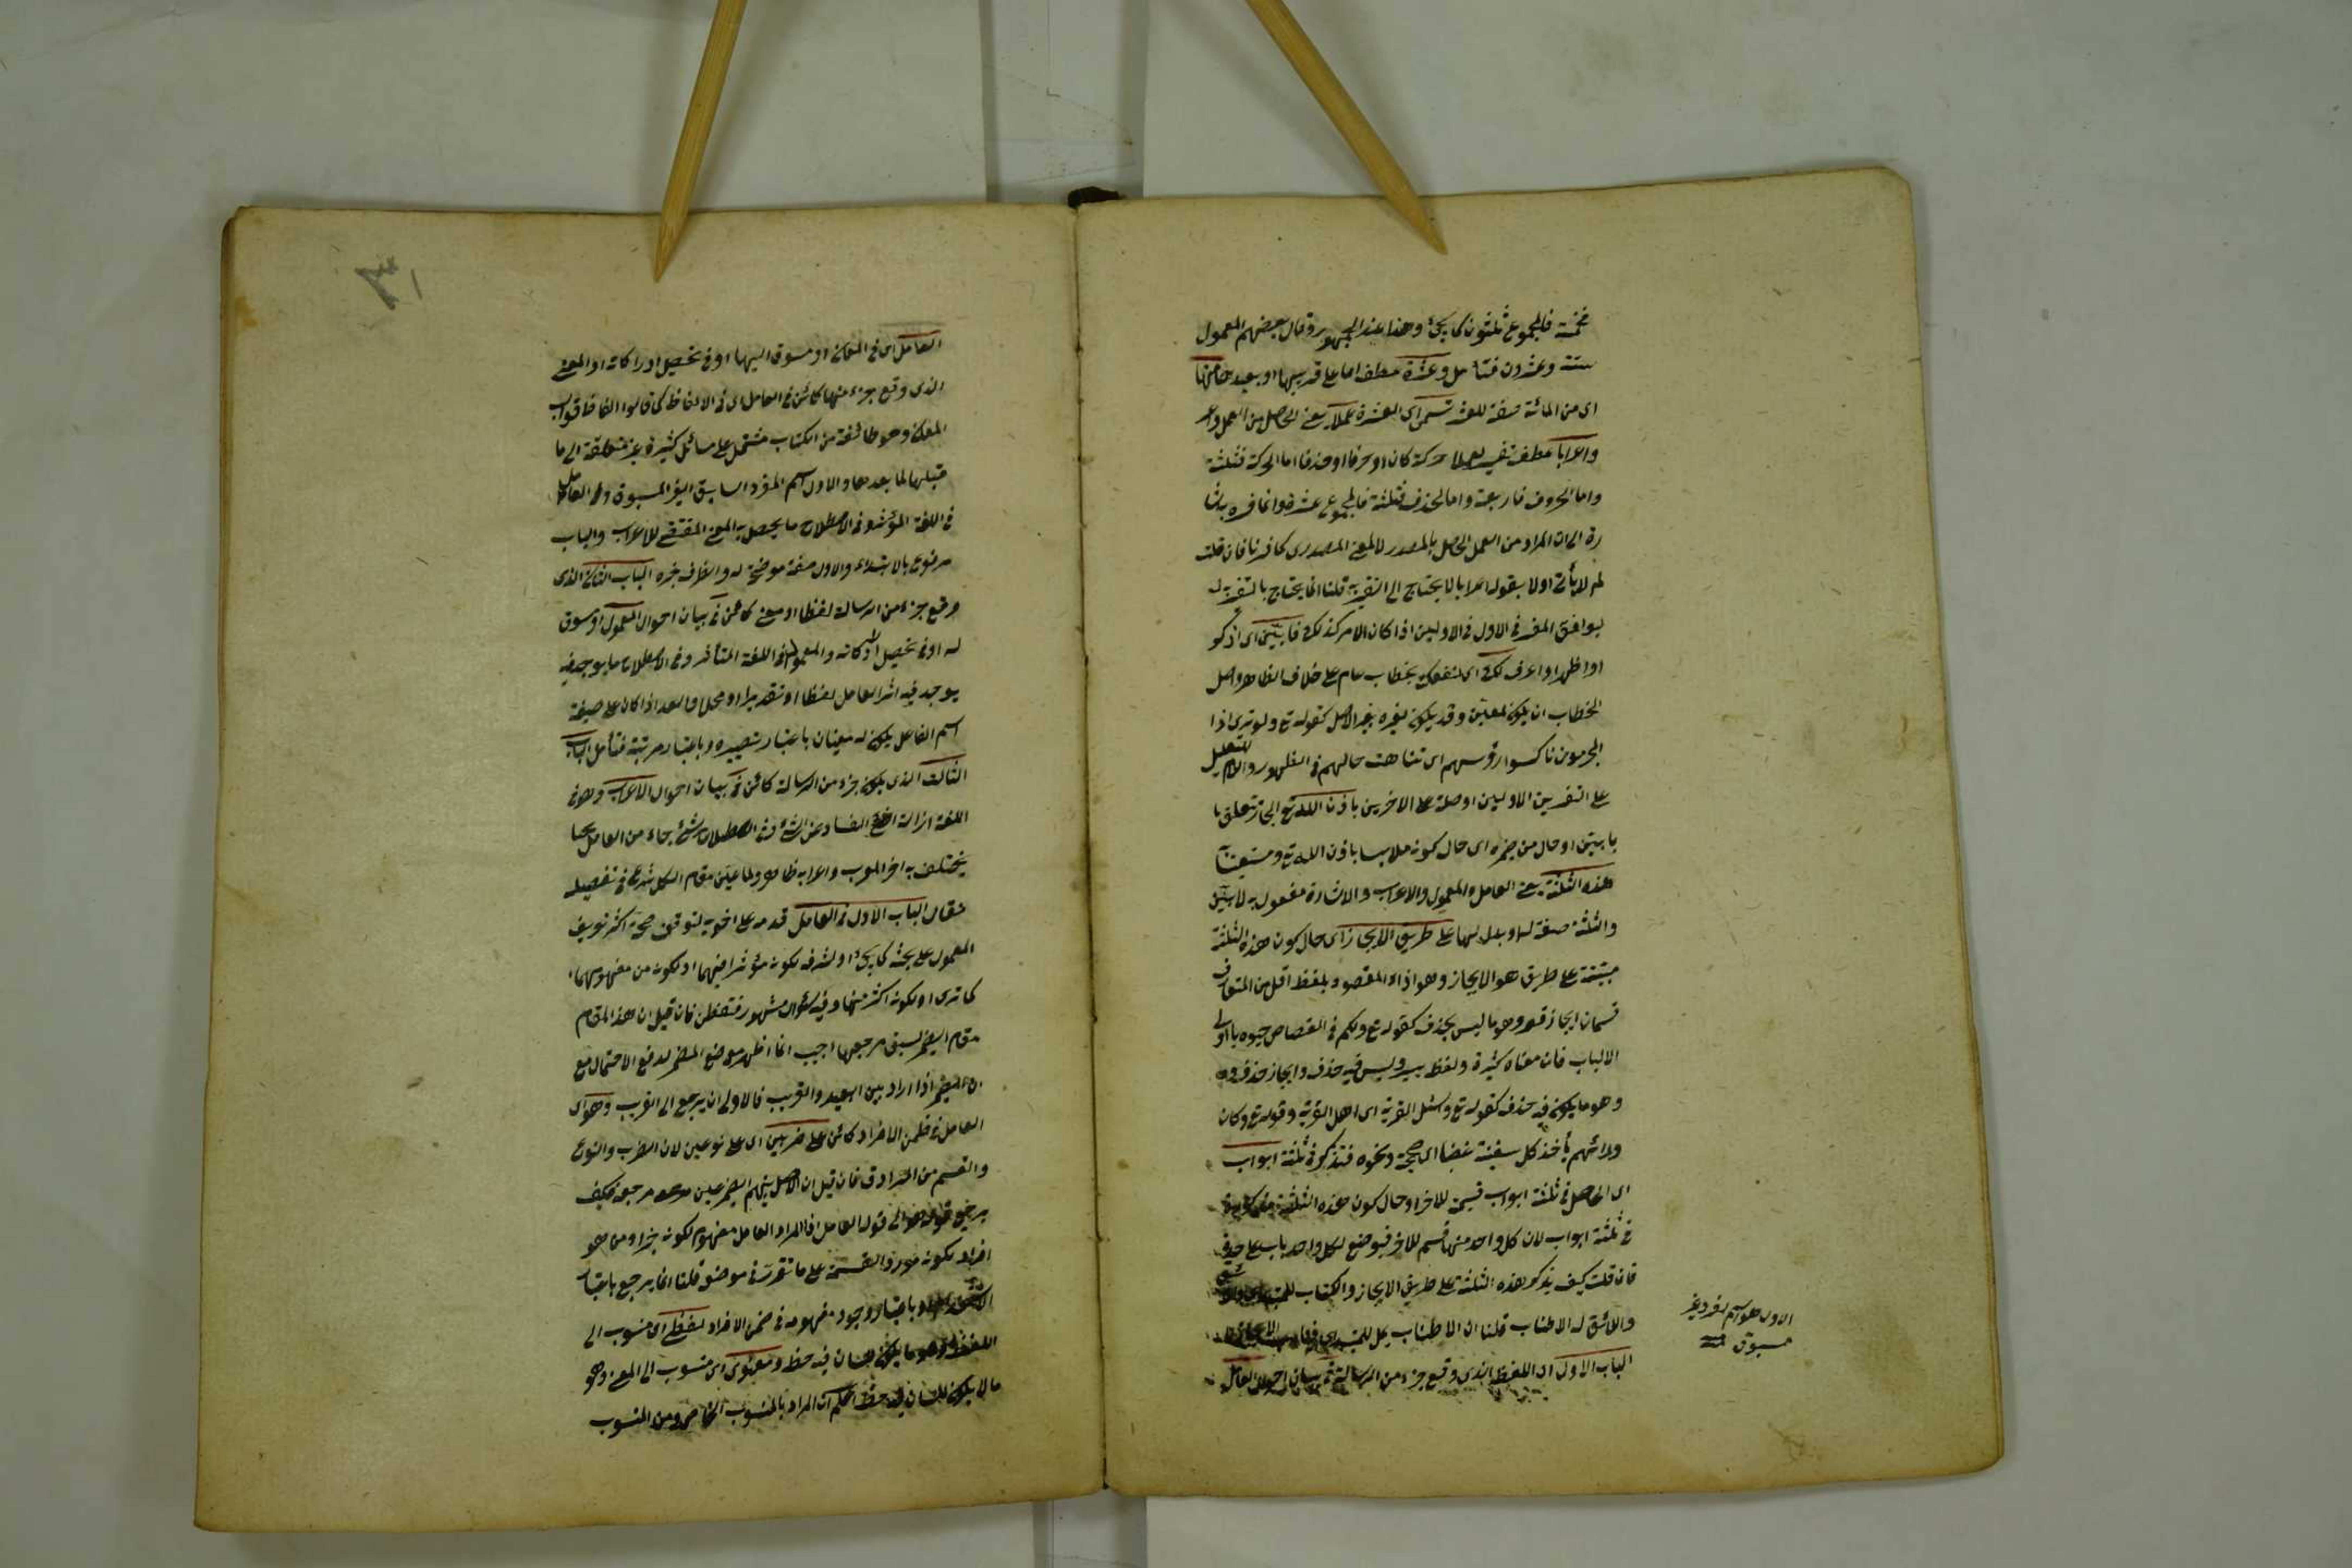 فخمسة فالمجموع ثلثون كما يجئ وهذا عند الجمهور وقال بعضهم المعمول
ستة وعشرون فتأمل وعشرة عطف اما على قريبها او بعيدها منها
اى من المائة صفة للعشر تسمى اى العشرة عملا يعنى الحاصل من العمل
واعرابا عطف تفسير حركة كان او حرفا او حذفا اما الحركة فثلثة
واما الحروف فاربعة واما الحذف فثلثة فالمجموع عشرة وانما فسره
رة الى ان المراد من العمل الحاصل بالمصدر لا المعنى المصدرى كما فسرنا فان قلت
لم لا يأتى اولا بقوله اعرابا لا يحتاج الى التفسير قلنا انما يحتاج بالتفسير
ليوافق المفسر فى الاول فى الاولين اذا كان الامر كذلك فابين اى اذكر
او اظهر او اعرف لك اى لنفعك بخطاب عام على خلاف الظاهر واصل
الخطاب ان يكون لمعين وقد يكون لغيره بغير الاصل كقوله تع ولو ترى اذا
المجرمون ناكسوا رؤسهم اى تناهت حالهم فى الظهور واللام للتعليل
على التفسيرين الاولين او صلة على الاخرين باذن الله تع الجار متعلق با
بابين او حال من ضميره اى حال كونه ملابسا باذن الله تع ومستعينا
هذه الثلثة يعنى العامل والمعمول والاعراب والاشارة مفعول به لابين
والثلثة صفة لها او بدل لها على طريق الايجاز اى حال كون هذه الثلثة
مبينة على طريق هو الايجاز وهو اداء المقصود بلفظ اقل من المتعارف
قسمان ايجاز قصر وهو ما ليس بحذف كقوله تع ولكم فى القصاص حيوة يا اولى
الالباب فان معناه كثيرة ولفظ يسير وليس فيه حذف وايجاز حذف
وهو ما يكون فيه حذف كقوله تع وسئل القرية اى اهل القرية وقوله تع وكان
ورائهم يأخذ كل سفينة غضبا اى صحيحة ونحوه فتذكر فى ثلثة ابواب
اى الحاصل فى ثلثة ابواب قسيمة للاخر او حال كون هذه الثلثة
فى ثلثة ابواب لان كل واحد منها قسم للاخر فيوضع لكل واحد باب على حدة
فان قلت كيف يذكر هذه الثلثة على طريق الايجاز والكتاب للمبتدى
واللائق له الاطناب قلنا ان الاطناب يمل للمبتدى
الباب الاول اى اللفظ الذى وقع جزء من الرسالة فى بيان احوال العامل
الاول هو اسم لفرد غير
مسبوق
العامل اى فى المعانى او مسوق اليها او فى تحصيل ادراكاته او المعنى
الذى وقع جزء منها كائن فى العامل اى فى الالفاظ كما قالوا الفاظ قوالب
المعانى وهو طائفة من الكتاب مشتمل على مسائل كثيرة غير متعلقة الى ما
قبلها لما بعدها والاول اسم المفرد السابق الغير المسبوق والعامل
فى اللغة المؤثر وفى الاصطلاح ما يحصل به المعنى المقتضى للاعراب والباب
مرفوع بالابتداء والاول صفة موضحة له والظرف خبره الباب الثانى الذى
وقع جزء من الرسالة لفظا او معنى كائن فى بيان احوال المعمول او مسوق
له او فى تحصيل ادراكاته والمعمول فى اللغة المتأثر وفى الاصطلاح ما يوجد فيه
يوجد فيه اثر العامل لفظا او تقديرا او محلا والعدد اذا كان على صيغة
اسم الفاعل يكون له معنيان باعتبار تصييره وباعتبار مرتبته فتأمل الباب
الثالث الذى يكون جزء من الرسالة كائن فى بيان احوال الاعراب وهو فى
اللغة ازالة الفساد عن الشئ وفى الاصطلاح شئ جاء من العامل
يختلف به اخر المعرب واعرابه ظاهر ولما عين مقام الكل شرع فى تفصيله
فقال الباب الاول فى العامل قدمه على اخويه لتوقف صحة اكثر تعريف
المعمول على بحثه كما يجئ او لشرفه لكونه مؤثرا فيهما او لكونه من مفهومهما
كما ترى او لكونه اكثر منهما وفيه سئوال مشهور فتفطن فان قيل ان هذا المقام
مقام الضمير لسبق مرجعها اجيب انما اظهر موضع المضمر لدفع الاحتمال مع
ان الضمير اذا اراد بين البعيد والقريب فالاولى ان يرجع الى القريب وهو اى
العامل فى ضمن الافراد كائن على ضربين اى على نوعين لان الضرب والنوع
والقسم من المترادف فان قيل ان الاصل الضمير عين مرجعه فكيف
يرجع هو الى قوله العامل اذ المراد العامل مفهوم لكونه جزاء ومن هو
افراد لكونه مورد القسمة على ما تقرر فى موضعه قلنا انما يرجع باعتبار
وباعتبار وجود مفهومه فى ضمن الافراد لفظى اى منسوب الى
اللفظ وهو ما يكون للسان فيه حظ ومعنوى اى منسوب الى المعنى وهو
ما لا يكون للسان فيه حظ اعلم ان المراد بالمنسوب الخاص ومن المنسوب